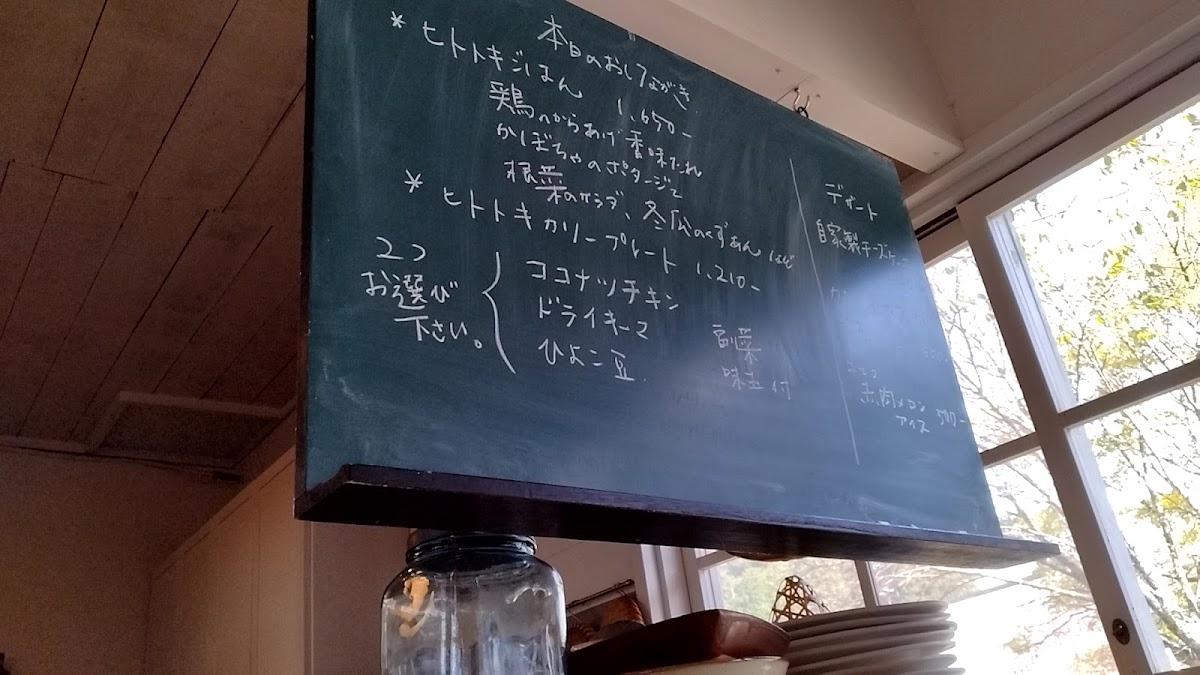 本日のおしながき
* ヒトトキごはん 1,650-
鶏のからあげ 香味だれ
かぼちゃのポタージュ
根菜のサラダ、冬瓜のくずあん など
* ヒトトキカリープレート 1,210-
2つ
お選び
下さい。
ココナッツチキン
ドライキーマ
ひよこ豆
副菜
味玉付
デザート
自家製チーズケーキ
赤肉メロン
アイス 500-